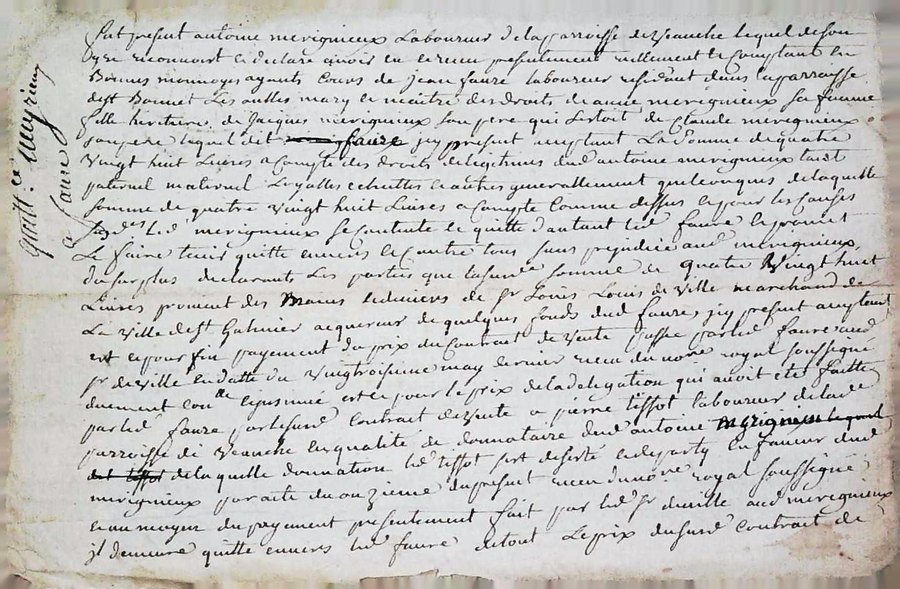 quitt.ce Meyrin
a faure
fut present antoine merignieux Laboureur de la parroisse de Veauche lequel de son
gre reconnoit et declare avoir eu et receu presentement reellement et Comptant en
Bonnes monnoyes ayants Cours de jean faure laboureur residant dans la parroisse
de st Bonnet Les oulles mary et maitre des droits de anne merignieux sa femme
fille heritiere de Jacques merignieux son pere qui L'etoit de Claude merignieux
son pere lequel dit faure jcy present acceptant La Somme de quatre
Vingt huit Livres a Compte des droits de legitimes dud antoine merignieux tant
paternel maternel Legalles echuttes et autres generallement quelconques de laquelle
Somme de quatre Vingt huit Livres a Compte Comme dessus et pour les Causes
sus des Led merignieux se contente et quitte d'autant led faure et promet
Le faire tenir quitte envers et Contre tous sans prejudice aud merignieux
du surplus declarants Les parties que la susde somme de quatre Vingt huit
Livres provient des Mains et deniers de Sr Louis Louis de Ville marchand de
La Ville de st Galmier acquereur de quelques fonds dud faure, jcy present acceptant
et pour fin payement du prix du Contrat de Vente passé par led faure aud
sr de Ville en datte du Vingt troisieme may dernier receu du no.re royal soussigné
duement Conlle et jnsinué est et pour le prix de la delegation qui avoit eté faitte
par led faure par le sud Contrat de Vente a pierre tissot laboureur de lad
parroisse de Veauche en qualité de donnataire dud antoine merignieux lequel
dit tissot de laquelle donnation led tissot s'est desisté et departy en faveur dud
merignieux par acte du onzieme du present receu du no.re royal soussigné
et au moyen du payement presentement fait par led sr de ville aud merignieux
jl demeure quitte envers led faure de tout Le prix du susd Contrat de